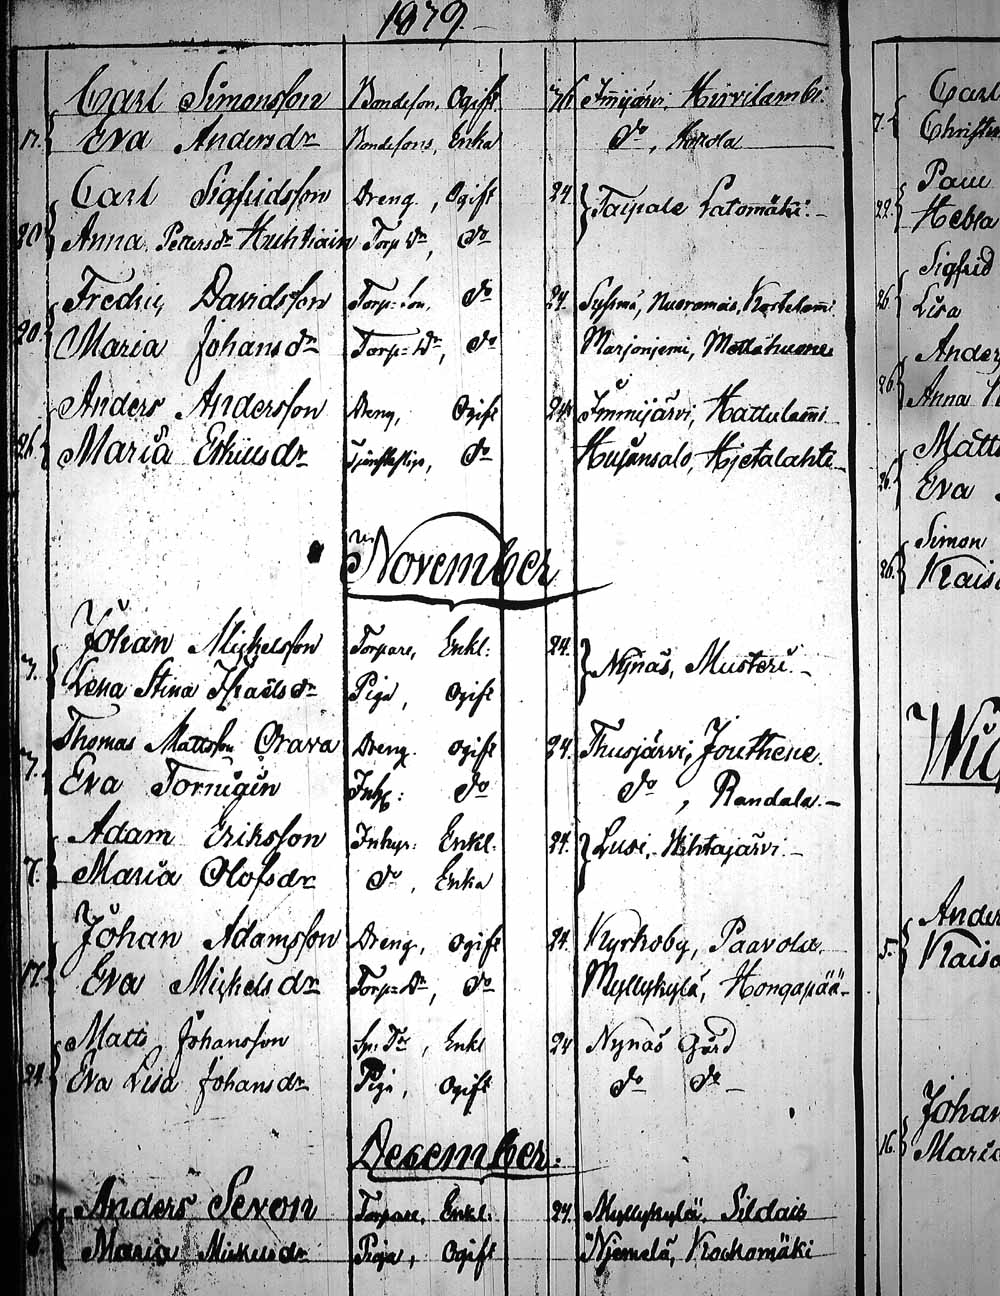 1879.
Carl Simonsson Bondeson, Ogift Immijärvi, Hirvilambi.
17. Eva Andersdr Bondesons, Enka do,
Carl Sigfridsson Dreng, Ogift 24. Taipale Latomäki.
20. Anna Pettersdr Huhtiain Torp Dr, do
Fredric Davidsson Torp: Son, do 24. Sysmä, Nuoramais,
20. Maria Johansdr Torp: Dr, do Marjoniemi,
Anders Andersson Dreng, Ogift 24. Immijärvi, Hattulammi
26. Maria Eriksdr do Hujansalo, Hietalahti
November
Johan Mickelsson Torpare, Enkl: 24. Nynäs, Musteri.
7. Lena Stina Israelsdr Piga, Ogift
Thomas Mattsson Orava Dreng. Ogift 24. Thusjärvi, Jouthene.
7. Eva Torniain Inh: do do, Randala.
Adam Eriksson Inhys: Enkl. 24. Lusi, Vihtajärvi.
7. Maria Olofsdr do, Enka
Johan Adamsson Dreng, Ogift 24. Kyrkoby, Paavola.
17. Eva Mickelsdr Torp: Dr, do Myllykylä, Hongapää
Matts Johansson Enkl 24 Nynäs Gård
24. Eva Lisa Johansdr Piga, Ogift do do
December.
Anders Sevon Torpare, Enkl. 24. Myllykylä,
Maria Mickelsdr Piga, Ogift Njemelä, Kockomäki
Carl
7.
Paul
22. Hebla
Sigfrid
26. Lisa
Ander
26. Anna
Matts
26. Eva
Simon
26. Kaisa
Ander
5. Kaisa
Johan
16. Maria